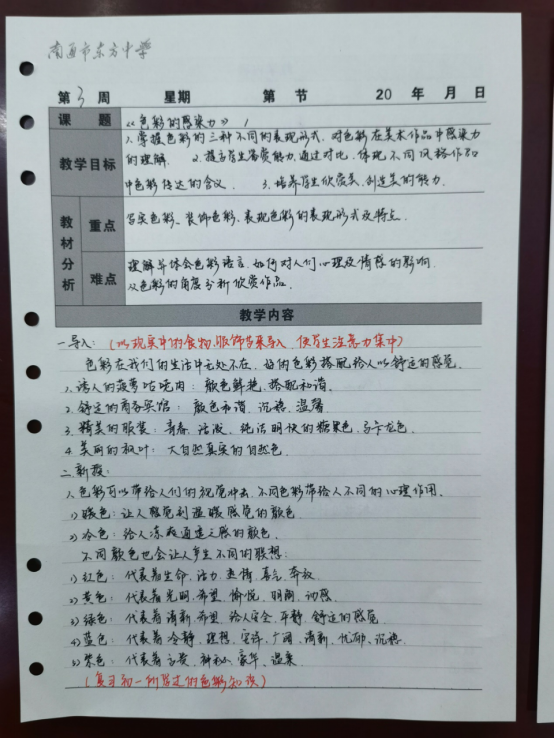 南通市东方中学
第 3 周 星期 第 节 20 年 月 日
课 题 《色彩的感染力》 1
教学目标 1. 掌握色彩的三种不同的表现形式, 对色彩在美术作品中感染力
的理解. 2. 提高学生鉴赏能力, 通过对比, 体现不同风格作品
中色彩传达的含义. 3. 培养学生欣赏美、创造美的能力.
教材分析 重点 写实色彩、装饰色彩、表现色彩的表现形式及特点.
难点 理解并体会色彩语言, 如何对人们心理及情感的影响.
从色彩的角度分析欣赏作品.
教学内容
一. 导入: (以现实中的食物、服饰等来导入, 使学生注意力集中)
色彩在我们的生活中无处不在, 好的色彩搭配给人以舒适的感觉.
1. 诱人的菠萝咕咾肉: 颜色鲜艳, 搭配和谐.
2. 舒适的商务宾馆: 颜色和谐, 沉稳, 温馨
3. 精美的服装: 青春, 活泼, 纯洁明快的糖果色, 马卡龙色.
4. 美丽的枫叶: 大自然真实的自然色.
二. 新授:
1. 色彩可以带给人们的视觉冲击, 不同色彩带给人不同的心理作用.
1) 暖色: 让人感觉到温暖感觉的颜色
2) 冷色: 给人凉爽通透之感的颜色.
不同颜色也会让人产生不同的联想:
1) 红色: 代表着生命, 活力, 热情, 喜气, 奔放
2) 黄色: 代表着光明, 希望, 愉悦, 明朗, 动感.
3) 绿色: 代表着清新, 希望, 给人安全, 平静, 舒适的感觉
4) 蓝色: 代表着冷静, 理想, 安详, 广阔, 清新, 忧郁, 沉稳.
5) 紫色: 代表着高贵, 神秘, 豪华, 温柔
(复习初一所学过的色彩知识)